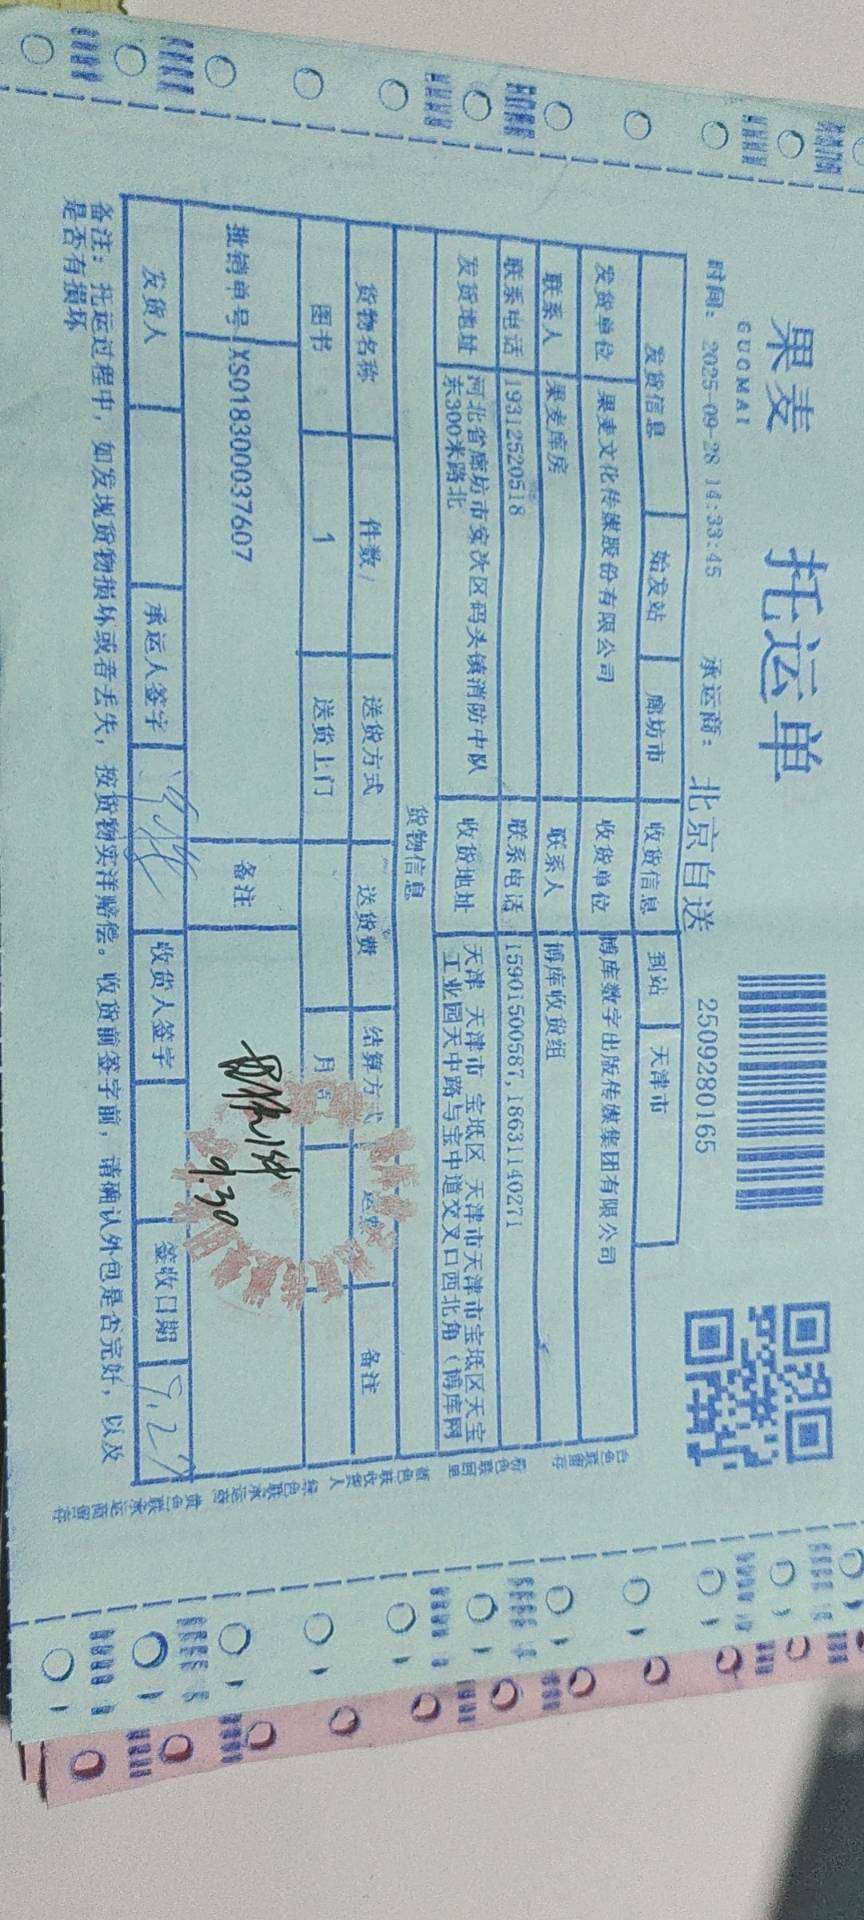 果麦
GUOMAI
托运单
时间: 2025-09-28 14:33:45 承运商: 北京自送 2509280165
发货信息 始发站 廊坊市 收货信息 到站 天津市
发货单位 果麦文化传媒股份有限公司 收货单位 博库数字出版传媒集团有限公司
联系人 果麦库房 联系人 博库收货组
联系电话 19312520518 联系电话 15901500587,18631140271
发货地址 河北省廊坊市安次区码头镇消防中队 收货地址 天津 天津市 宝坻区 天津市天津市宝坻区天宝
东300米路北 工业园天中路与宝中道交叉口西北角(博库网
货物信息
货物名称 件数/ 送货方式 送货费 结算方式 运费 备注
图书 1 送货上门 月结
批销单号 XS018300037607 备注
9.30
发货人 承运人签字 收货人签字 签收日期
备注: 托运过程中, 如发现货物损坏或者丢失, 按货物实洋赔偿。收货前签字前, 请确认外包是否完好, 以及
是否有损坏
白色联留存
粉色联回单
蓝色联收货人
绿色联承运商
黄色联承运商留存